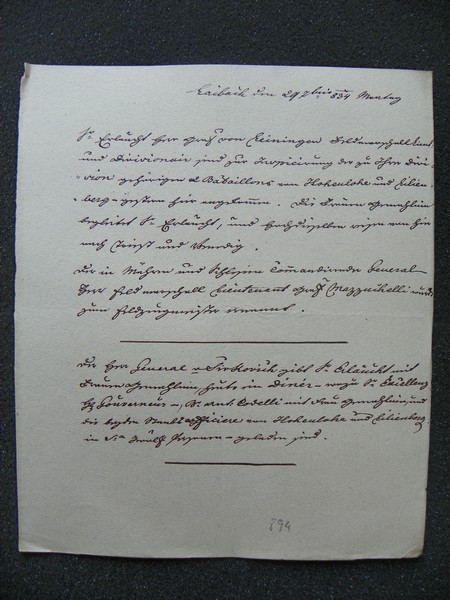 Laibach den 29 834 Montag
Sr Erlaucht Herr Graf von Leiningen Feldmarschall Lieut
und Divisionair sind zur Inspicirung der zu Ihrer Divi-
sion gehörigen 2 Bataillons von Hohenlohe und Lilien-
berg gestern hier angekommen. Die Frau Gemahlin
begleitet Sr Erlaucht, und Hochdieselben reisen von hier
nach Triest und Venedig.
Der in Mähren und Schlesien Commandirende General
Herr Feldmarschall Lieutenant Graf Mazzuchelli wurde
zum Feldzeugmeister ernannt.
Der Herr General v gibt Sr Erlaucht mit
Frau Gemahlin heute ein Diner – wozu Sr Excellenz
H Gouverneur –, Codelli mit Frau Gemahlin und
die beyden Staabsofficiere von Hohenlohe und Lilienberg
in Personen – geladen sind.
894